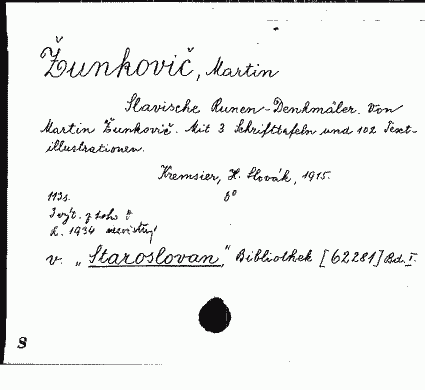 Žunkovič, Martin
Slavische Runen-Denkmäler. Von
Martin Žunkovič. Mit 3 Schrifttafeln und 102 Text-
illustrationen.
Kremsier, H. Slovák, 1915.
113s. 8°
3 výt. z toho
R. 1934
v. „Staroslovan," Bibliothek [62281] Bd. I.
8